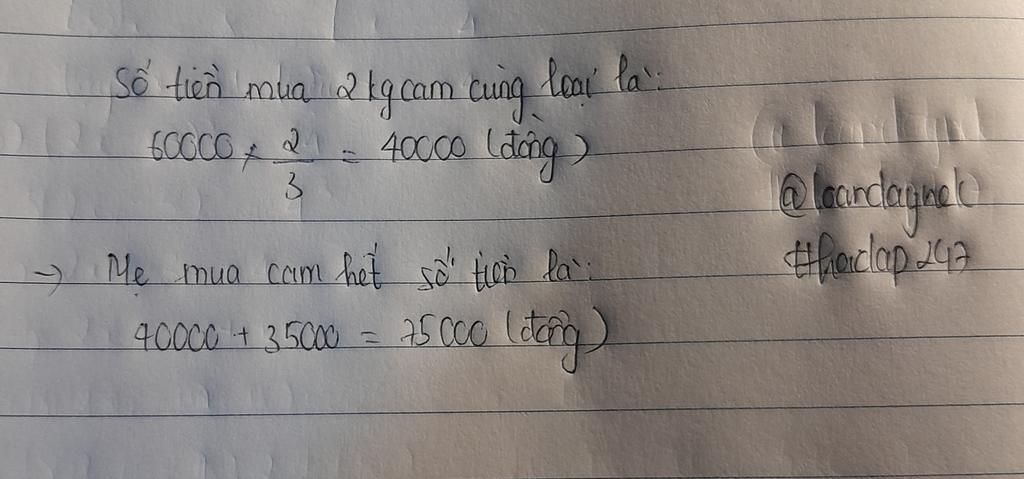 Số tiền mua 2kg cam cùng loại là:
60000 × 2/3 = 40000 (đồng)
→ Mẹ mua cam hết số tiền là:
40000 + 35000 = 75000 (đồng)
@loandagnel
#hoidap247